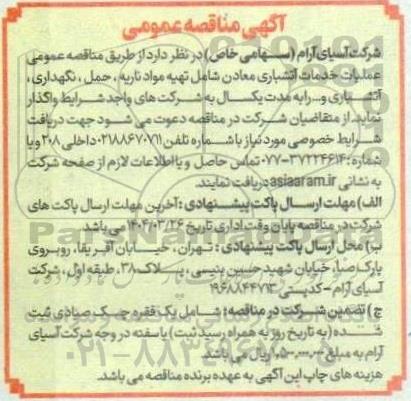 آگهی مناقصه عمومی
شرکت آسیای آرام (سهامی خاص) در نظر دارد از طریق مناقصه عمومی
عملیات خدمات آتشباری معادن شامل تهیه مواد ناریه، حمل، نگهداری،
آتشباری و... را به مدت یکسال به شرکت های واجد شرایط واگذار
نماید. از متقاضیان شرکت در مناقصه دعوت می شود جهت دریافت
شرایط خصوصی مورد نیاز با شماره تلفن ۰۲۱۸۸۶۷۰۷۱۱ داخلی ۲۰۸ و یا
شماره: ۳۷۲۲۴۶۱۴-۰۷۷ تماس حاصل و یا اطلاعات لازم از صفحه شرکت
به نشانی asiaaram.ir دریافت نمایند.
الف) مهلت ارسال پاکت پیشنهادی: آخرین مهلت ارسال پاکت های
شرکت در مناقصه پایان وقت اداری تاریخ ۱۴۰۴/۰۳/۲۶ می باشد.
ب) محل ارسال پاکت پیشنهادی: تهران، خیابان آفریقا، روبروی
پارک صبا، خیابان شهید حسین پنیسی، پلاک ۳۸، طبقه اول، شرکت
آسیای آرام - کدپستی ۱۹۶۸۸۴۴۷۱۳
ج) تضمین شرکت در مناقصه: شامل یک فقره چک صیادی ثبت
شده (به تاریخ روز به همراه رسید ثبت) یا سفته در وجه شرکت آسیای
آرام به مبلغ ریال می باشد.
هزینه های چاپ این آگهی به عهده برنده مناقصه می باشد.